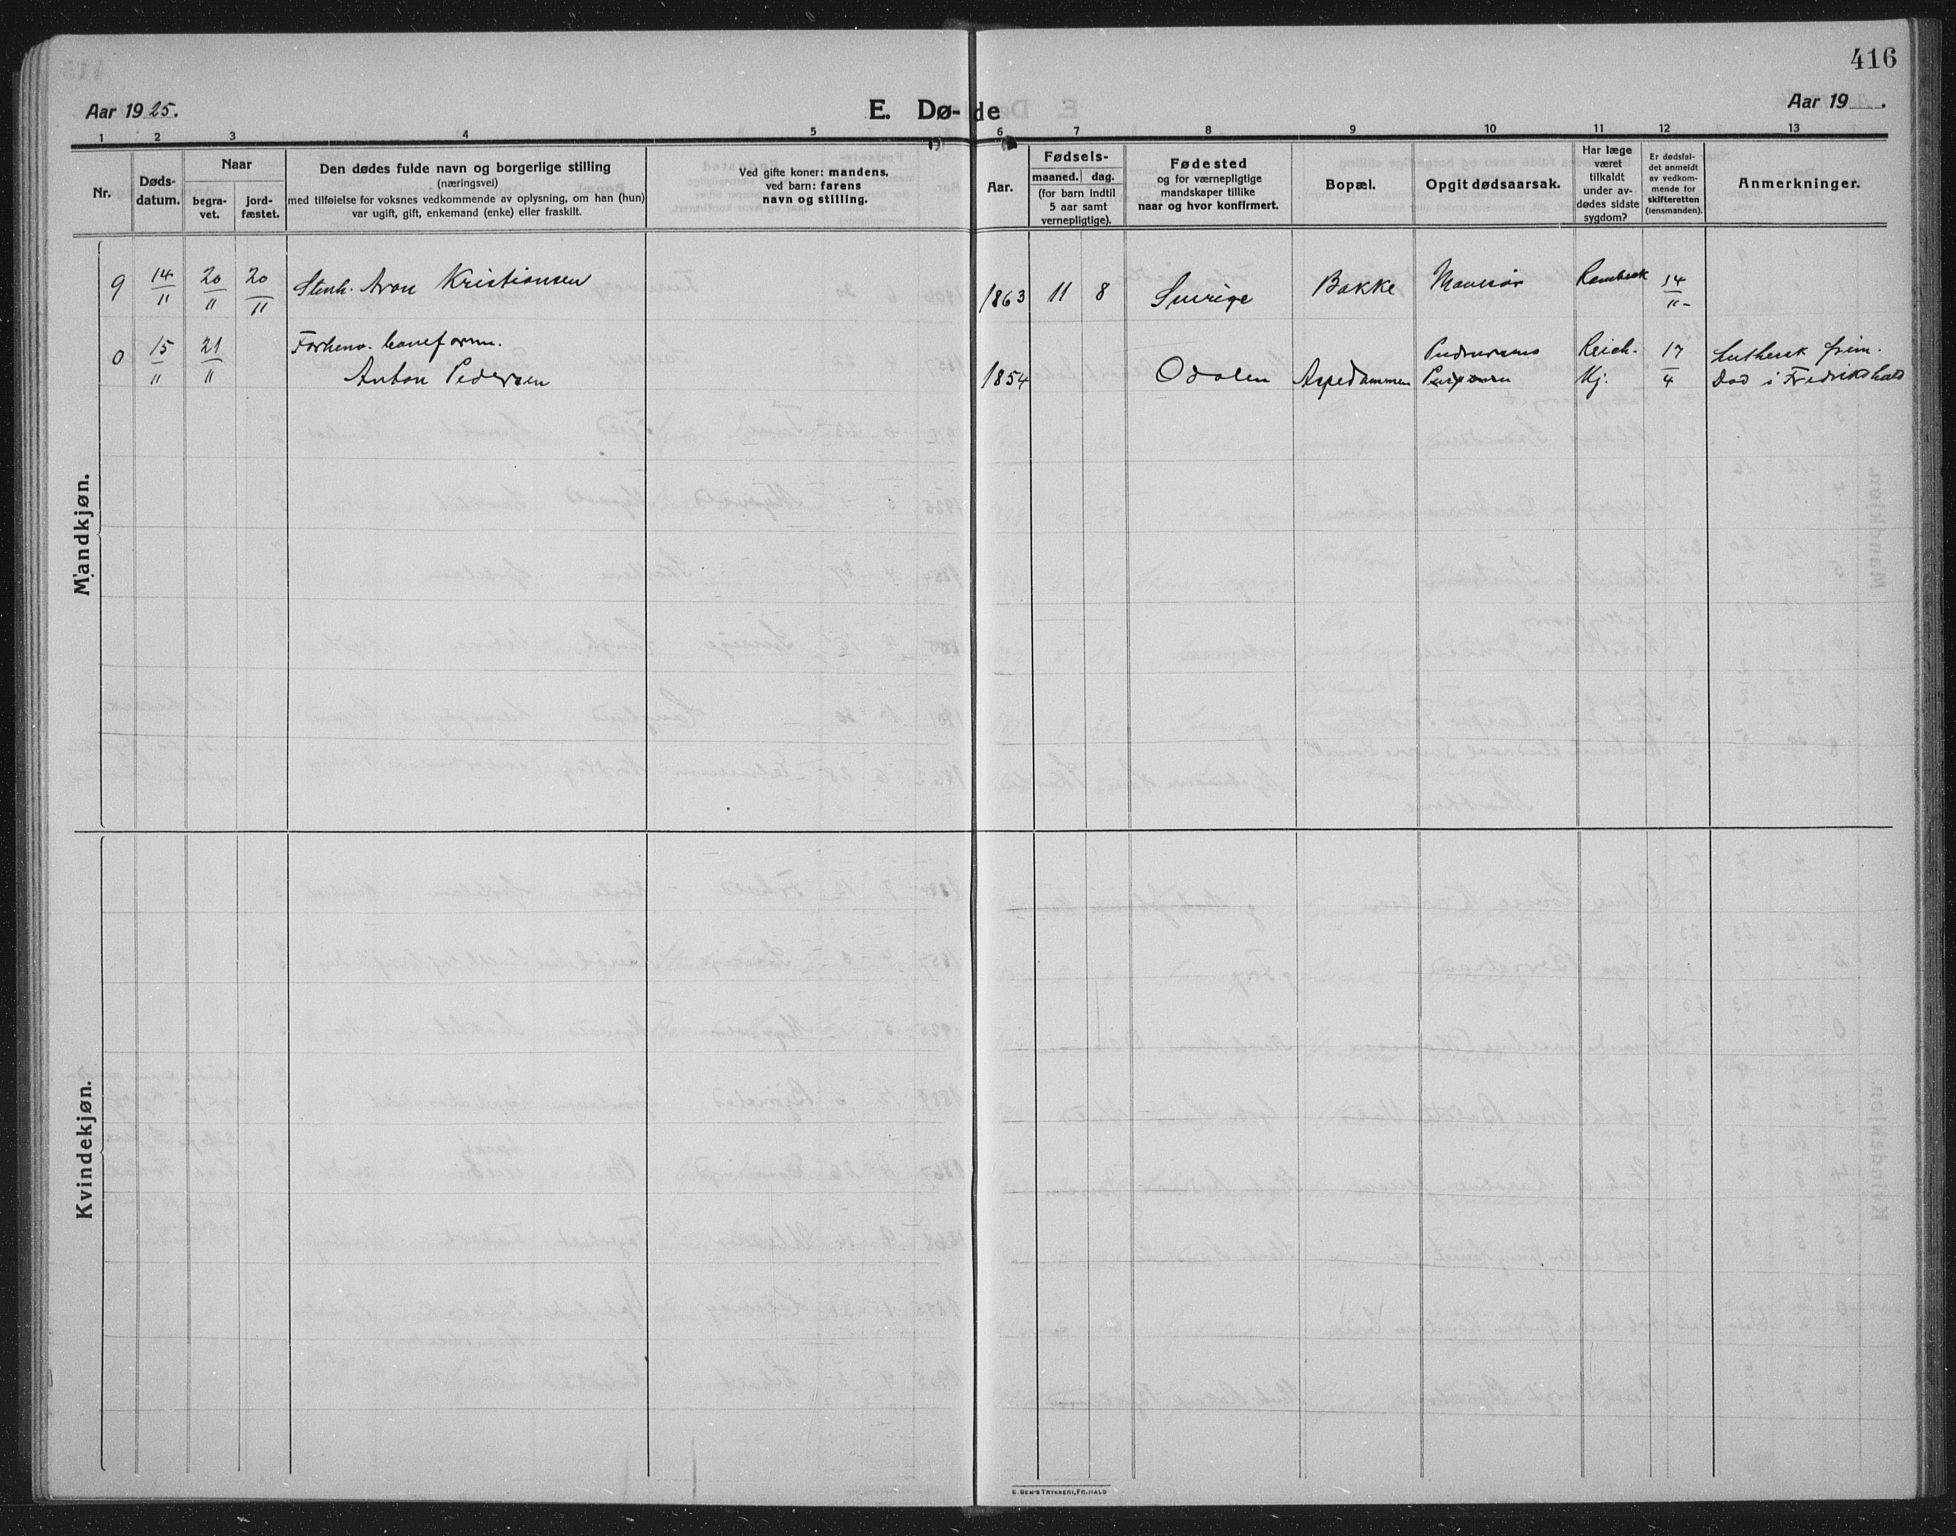 416
Aar 1925.
E. Dø-de
Aar 19 .
1 2 3 4 5 6 7 8 9 10 11 12 13
Nr.
Døds-
datum.
Naar
begra-
vet.
jord-
fæstet.
Den dødes fulde navn og borgerlige stilling
(næringsvei)
med tilføielse for voksnes vedkommende av oplysning, om han (hun)
var ugift, gift, enkemand (enke) eller fraskilt.
Ved gifte koner: mandens,
ved barn: farens
navn og stilling.
Aar.
Fødsels-
maaned. dag.
(for barn indtil
5 aar samt
vernepligtige).
Fødested
og for værnepligtige
mandskaper tillike
naar og hvor konfirmert.
Bopæl.
Opgit dødsaarsak.
Har læge
været
tilkaldt
under av-
dødes sidste
sygdom?
Er dødsfal-
det anmeldt
av vedkom-
mende for
skifteretten
(lensmanden).
Anmerkninger.
Mandkjøn.
9 14/11 20/11 20/11 Stenh. Aron Kristiansen 1863 11 8 Sverige Bakke 14/11
0 15/11 21/11 Forhenv. baneform.
Anton Pedersen 1854 Odalen Aspedammen Reich. Kj. 17/4 Luthersk frim.
Død i Fredrikshald
Kvindekjøn.
E. SEM'S TRYKKERI, FR.HALD